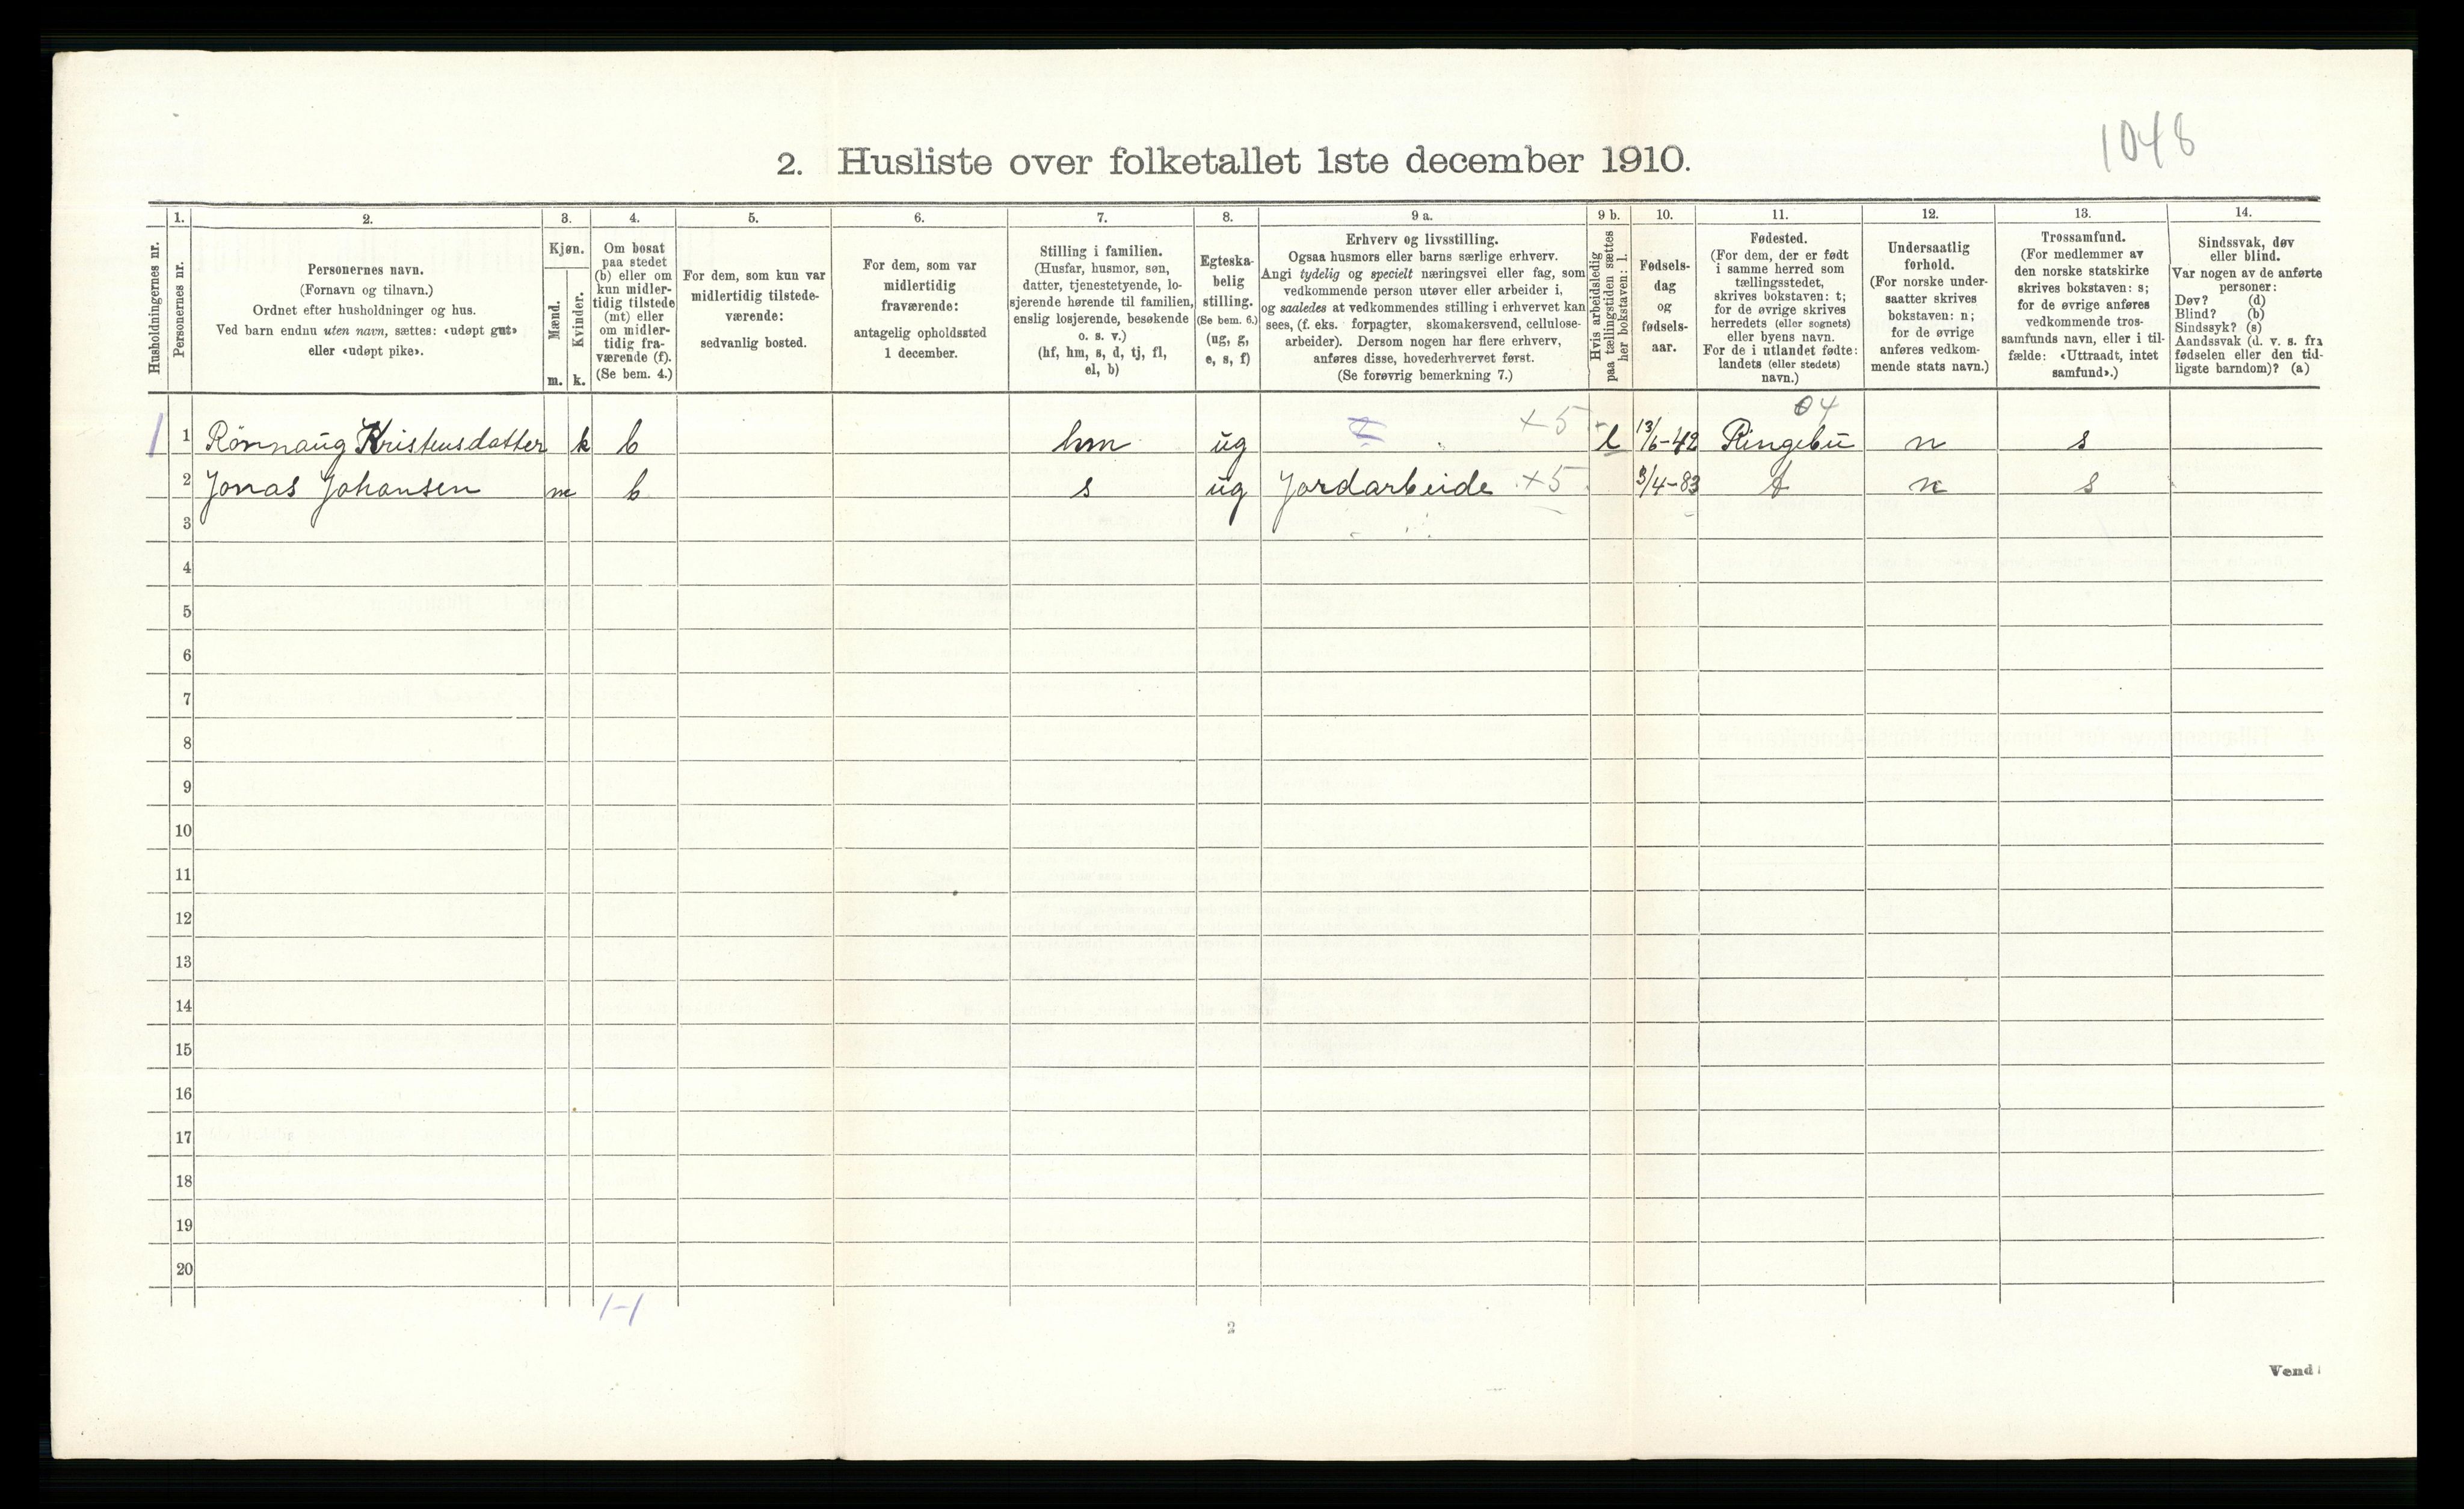 1048
2. Husliste over folketallet 1ste december 1910.
Husholdningernes nr.
1.
Personernes nr.
2.
Personernes navn.
(Fornavn og tilnavn.)
Ordnet efter husholdninger og hus.
Ved barn endnu uten navn, sættes: «udøpt gut»
eller «udøpt pike».
3.
Kjøn.
Mænd.
Kvinder.
m.
k.
4.
Om bosat
paa stedet
(b) eller om
kun midler-
tidig tilstede
(mt) eller
om midler-
tidig fra-
værende (f).
(Se bem. 4.)
5.
For dem, som kun var
midlertidig tilstede-
værende:
sedvanlig bosted.
6.
For dem, som var
midlertidig
fraværende:
antagelig opholdssted
1 december.
7.
Stilling i familien.
(Husfar, husmor, søn,
datter, tjenestetyende, lo-
sjerende hørende til familien,
enslig losjerende, besøkende
o. s. v.)
(hf, hm, s, d, tj, fl,
el, b)
8.
Egteska-
belig
stilling.
(Se bem. 6.)
(ug, g,
e, s, f)
9 a.
Erhverv og livsstilling.
Ogsaa husmors eller barns særlige erhverv.
Angi tydelig og specielt næringsvei eller fag, som
vedkommende person utøver eller arbeider i,
og saaledes at vedkommendes stilling i erhvervet kan
sees, (f. eks. forpagter, skomakersvend, cellulose-
arbeider). Dersom nogen har flere erhverv,
anføres disse, hovederhvervet først.
(Se forøvrig bemerkning 7.)
9 b.
Hvis arbeidsledig
paa tællingstiden sættes
her bokstaven: l.
10.
Fødsels-
dag
og
fødsels-
aar.
11.
Fødested.
(For dem, der er født
i samme herred som
tællingsstedet,
skrives bokstaven: t;
for de øvrige skrives
herredets (eller sognets)
eller byens navn.
For de i utlandet fødte:
landets (eller stedets)
navn.)
12.
Undersaatlig
forhold.
(For norske under-
saatter skrives
bokstaven: n;
for de øvrige
anføres vedkom-
mende stats navn.)
13.
Trossamfund.
(For medlemmer av
den norske statskirke
skrives bokstaven: s;
for de øvrige anføres
vedkommende tros-
samfunds navn, eller i til-
fælde: «Uttraadt, intet
samfund».)
14.
Sindssvak, døv
eller blind.
Var nogen av de anførte
personer:
Døv? (d)
Blind? (b)
Sindssyk? (s)
Aandssvak (d. v. s. fra
fødselen eller den tid-
ligste barndom)? (a)
04
1 1 Rönnaug Kristensdatter k b hm ug +5 l 13/6-42 Ringebu n s
2 Jonas Johansen m b s ug Jordarbeide +5 3/4-83 t n s
3
4
5
6
7
8
9
10
11
12
13
14
15
16
17
18
19
20
1-1
2
Vend